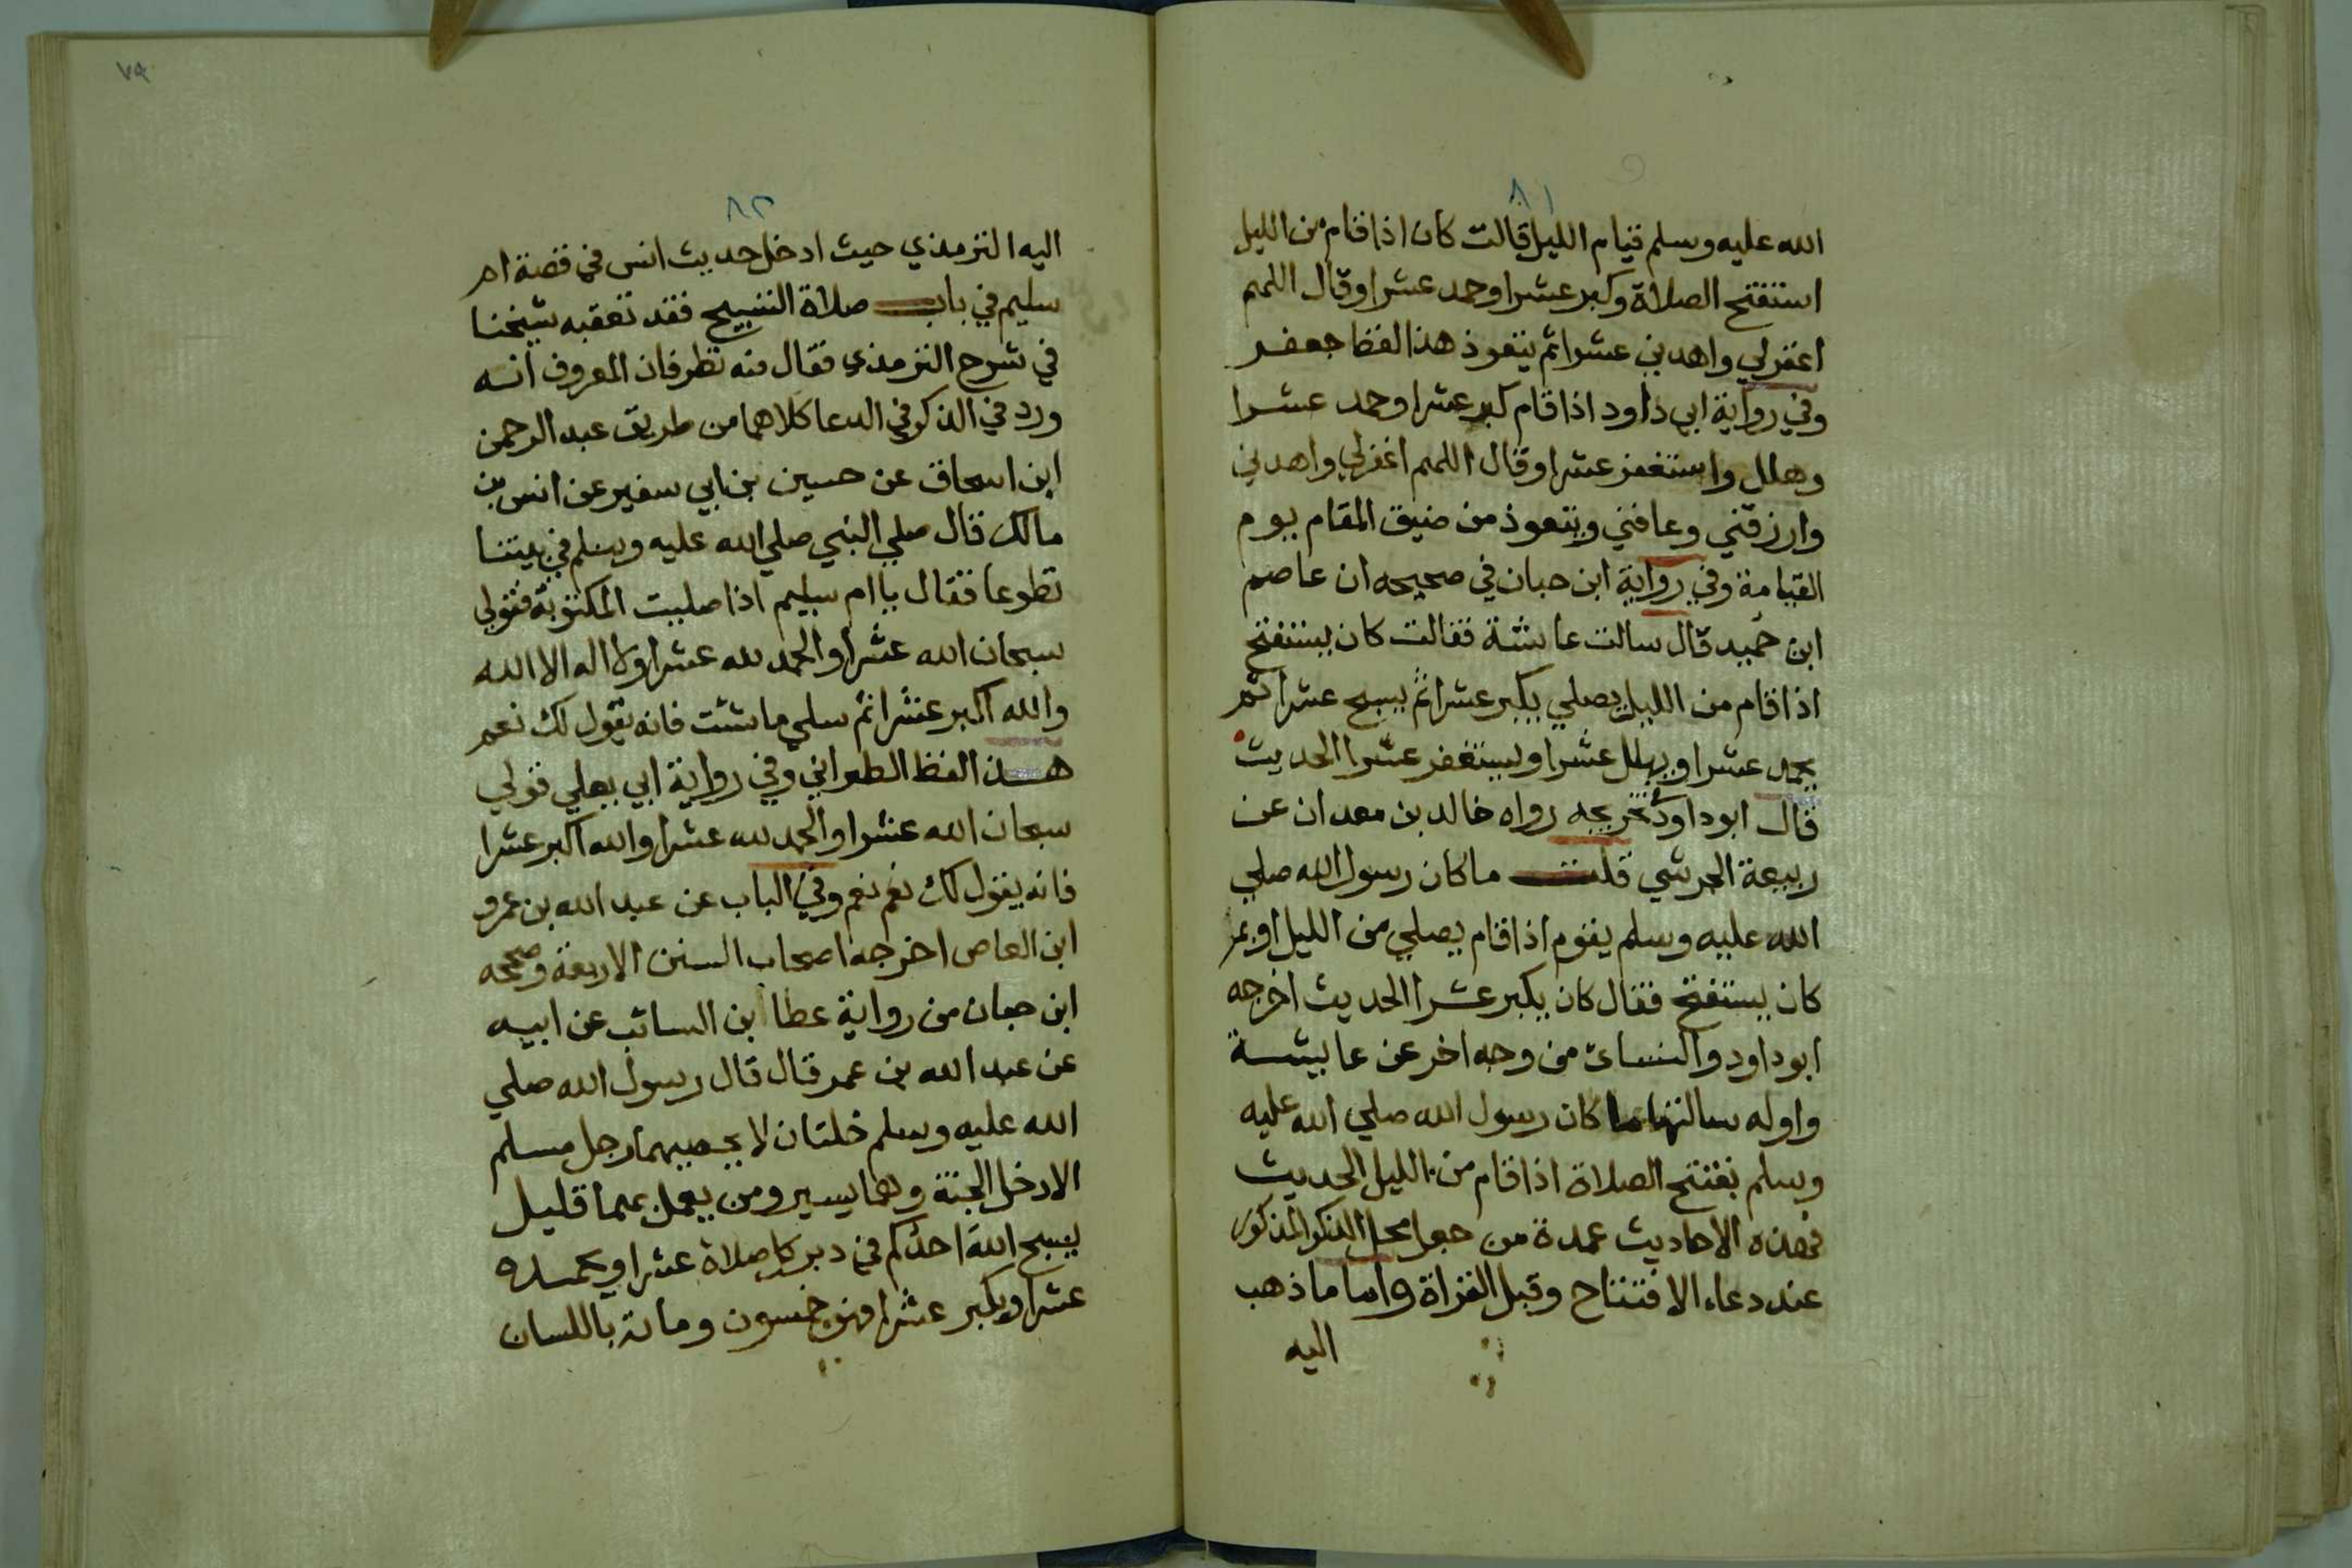 ٨١
الله عليه وسلم قيام الليل قالت كان اذا قام من الليل
استفتح الصلاة وكبر عشرا وحمد عشرا وقال اللهم
اغفر لي واهدني عشرا ثم يتعوذ هذا لفظ جعفر
وفي رواية ابي داود اذا قام كبر عشرا وحمد عشرا
وهلل واستغفر عشرا وقال اللهم اغفر لي واهدني
وارزقني وعافني ويتعوذ من ضيق المقام يوم
القيامة وفي رواية ابن حبان في صحيحه ان عاصم
ابن حميد قال سالت عايشة فقالت كان يستفتح
اذا قام من الليل يصلي يكبر عشرا ثم يسبح عشرا ثم
يحمد عشرا ويهلل عشرا ويستغفر عشرا الحديث
قال ابو داود تخريجه رواه خالد بن معدان عن
ربيعة الجرشي قلت ما كان رسول الله صلي
الله عليه وسلم يقوم اذا قام يصلي من الليل او بم
كان يستفتح فقال كان يكبر عشرا الحديث اخرجه
ابو داود والنسائ من وجه اخر عن عايشة
واوله سالتها ما كان رسول الله صلي الله عليه
وسلم يفتتح الصلاة اذا قام من الليل الحديث
فهذه الاحاديث عمدة من جعل محل الذكر المذكور
عند دعاء الافتتاح وقبل القراة واما ما ذهب
اليه
٧٩
٨٢
اليه الترمذي حيث ادخل حديث انس في قصة ام
سليم في باب صلاة التسبيح فقد تعقبه شيخنا
في شرح الترمذي فقال فيه نظر فان المعروف انه
ورد في الذكر في الدعا كلاهما من طريق عبد الرحمن
ابن اسحاق عن حسين بن ابي سفير عن انس بن
مالك قال صلي النبي صلي الله عليه وسلم في بيتنا
تطوعا فقال يا ام سليم اذا صليت المكتوبة فقولي
سبحان الله عشرا والحمد لله عشرا ولا اله الا الله
والله اكبر عشرا ثم سلي ما شئت فانه يقول لك نعم
هذا لفظ الطبراني وفي رواية ابي يعلي قولي
سبحان الله عشرا والحمد لله عشرا والله اكبر عشرا
فانه يقول لك نعم نعم وفي الباب عن عبد الله بن عمرو
ابن العاص اخرجه اصحاب السنن الاربعة وصححه
ابن حبان من رواية عطا ابن السائب عن ابيه
عن عبد الله بن عمر قال قال رسول الله صلي
الله عليه وسلم خلتان لا يحصيهما رجل مسلم
الا دخل الجنة وهما يسير ومن يعمل بهما قليل
يسبح الله احدكم في دبر كل صلاة عشرا ويحمده
عشرا ويكبر عشرا فهي خمسون ومائة باللسان